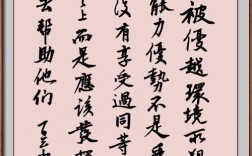 被優越環境所
能力優勢不是
沒有享受過同等
上而是應該發
去幫助他们